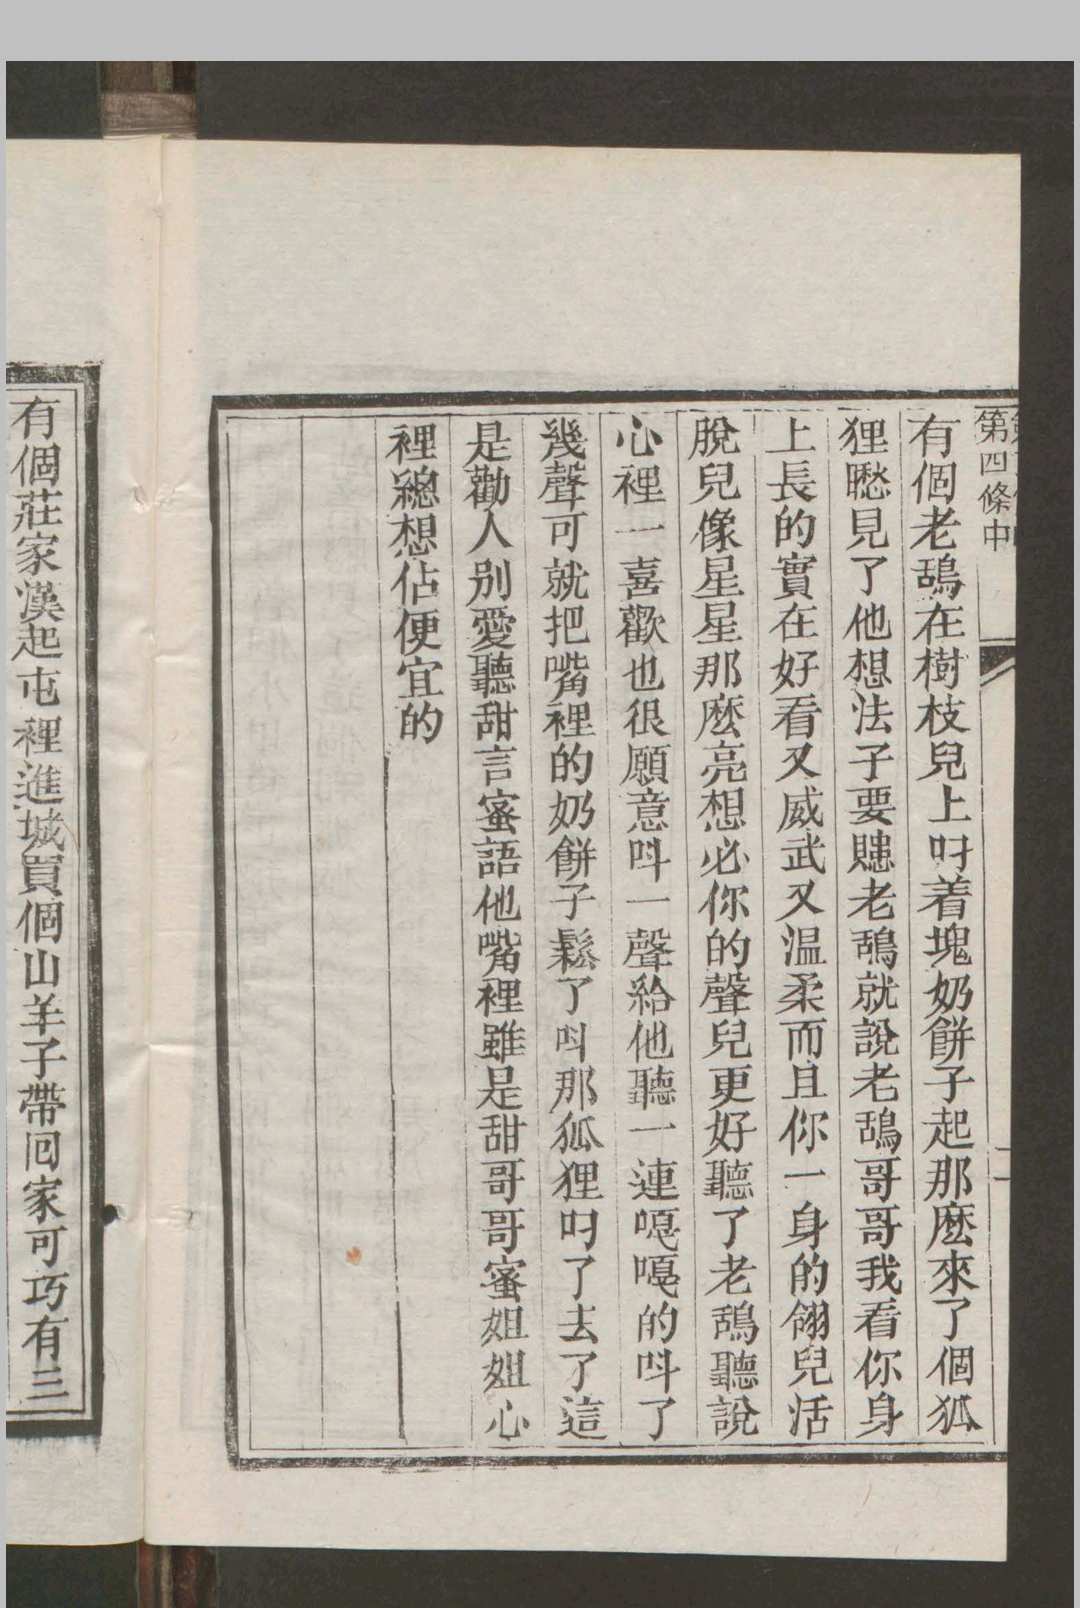 第四條中
有個老鴰在樹枝兒上叼着塊奶餅子起那麽來了個狐
狸瞧見了他想法子要賺老鴰就說老鴰哥哥我看你身
上長的實在好看又威武又温柔而且你一身的翎兒活
脫兒像星星那麽亮想必你的聲兒更好聽了老鴰聽說
心裡一喜歡也很願意呌一聲給他聽一連嘎嘎的呌了
幾聲可就把嘴裡的奶餅子鬆了呌那狐狸叼了去了這
是勸人别愛聽甜言蜜語他嘴裡雖是甜哥哥蜜姐姐心
裡總想佔便宜的
有個莊家漢起屯裡進城買個山羊子帶囘家可巧有三